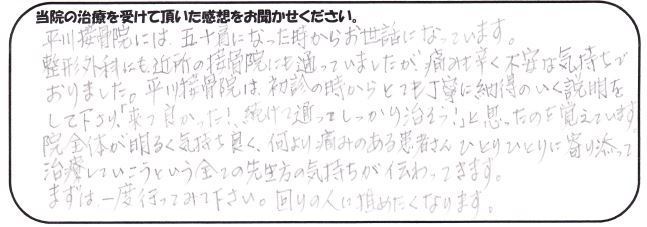 当院の治療を受けて頂いた感想をお聞かせください。
平川接骨院には、五十肩になった時からお世話になっています。
整形外科にも近所の接骨院にも通っていましたが、痛みは辛く不安な気持ちで
おりました。平川接骨院は、初診の時からとても丁寧に納得のいく説明を
して下さり、「来て良かった！、続けて通ってしっかり治そう！」と思ったのを覚えています。
院全体が明るく気持ち良く、何より痛みのある患者さんひとりひとりに寄り添って
治療していこうという全ての先生方の気持ちが伝わってきます。
まずは、一度行ってみて下さい。回りの人に推めたくなります。